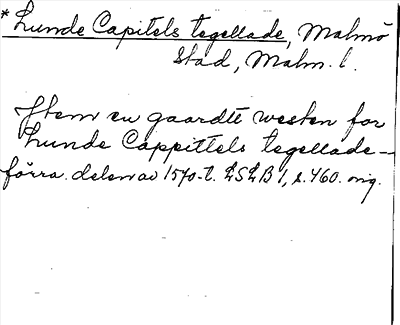 * Lunde Capitels tegellade, Malmö
Stad, Malm. l.
Item en gaardtt westen for
Lunde Cappittels tegellade—
förra delen av 1570-t. LSLB 1, s. 460. orig.